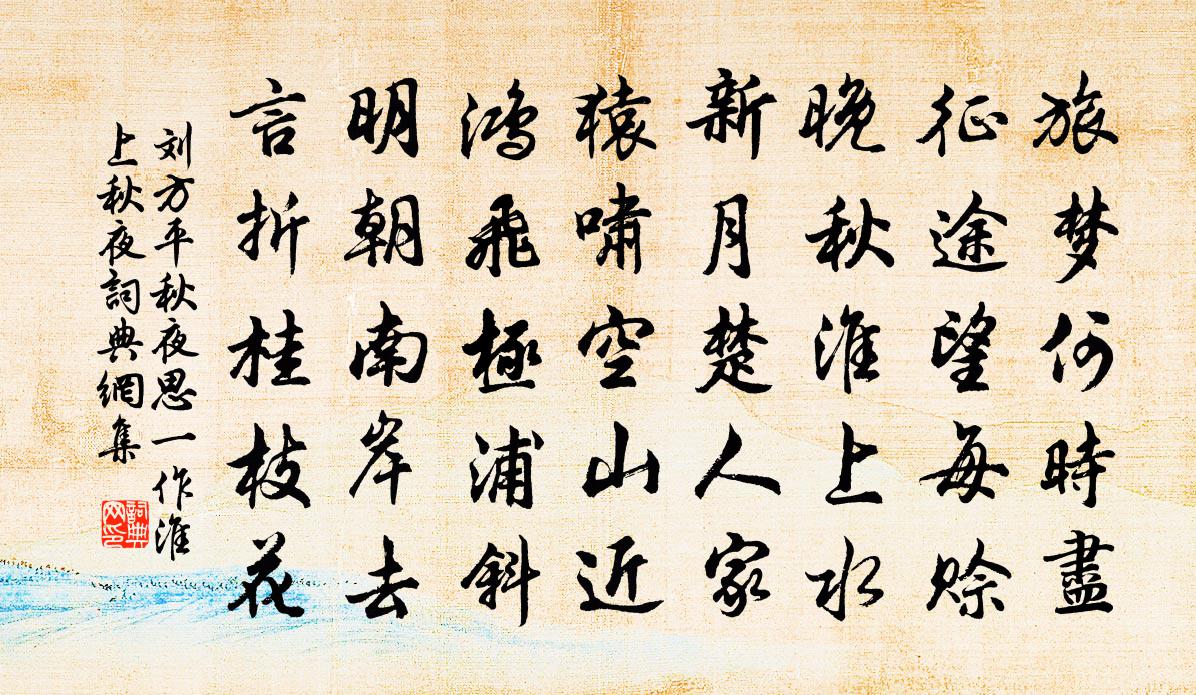 旅梦何時盡
征途望每賒
晚秋淮上水
新月楚人家
猿啸空山近
鸿飛極浦斜
明朝南岸去
言折桂枝花
刘方平秋夜思一作淮
上秋夜詞典網集
詞典
网印